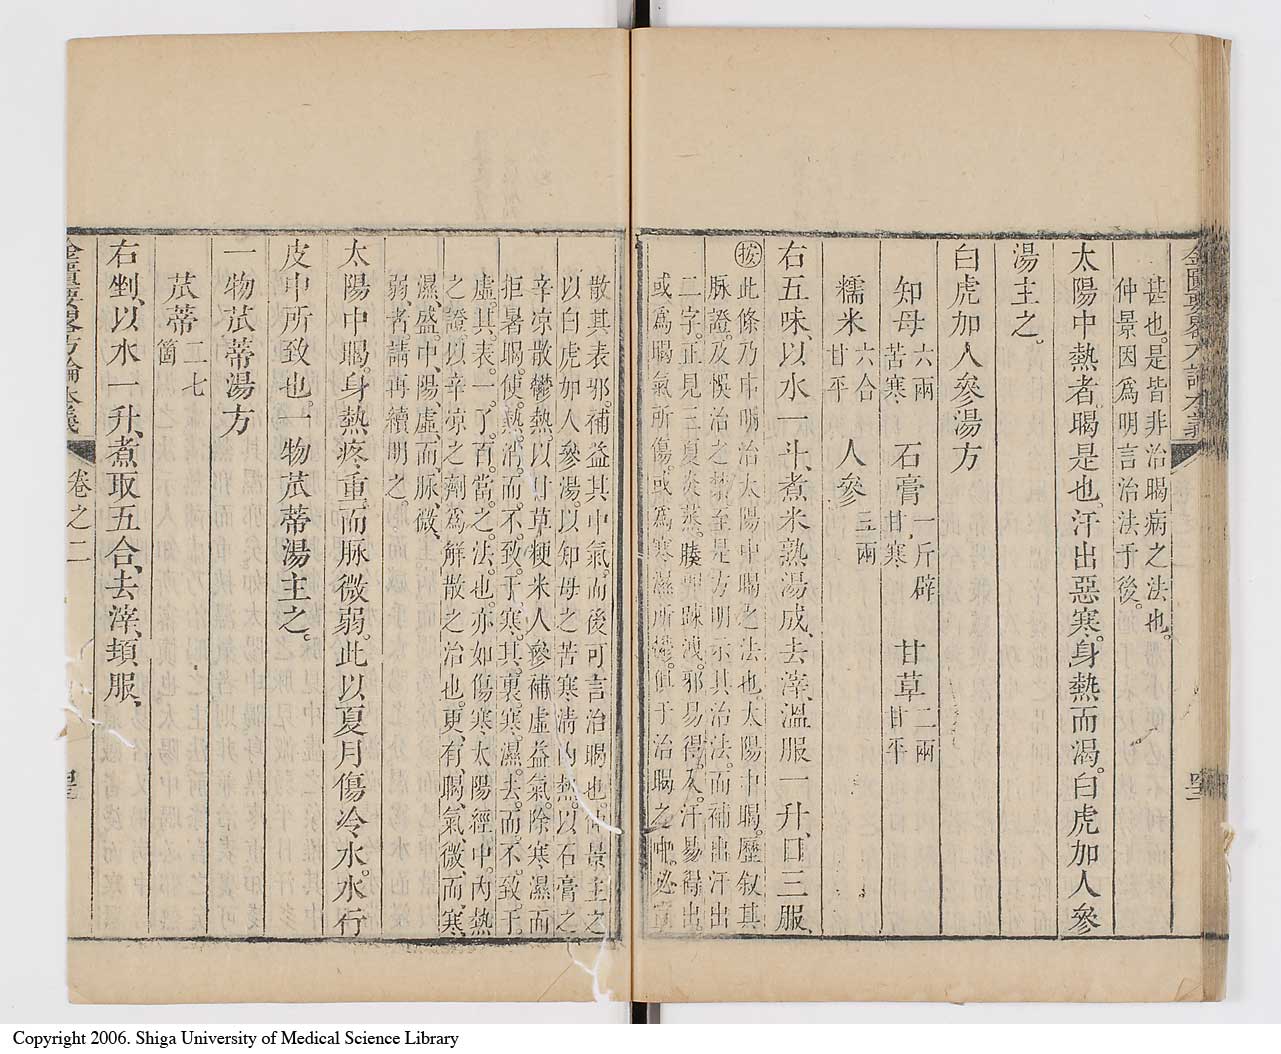 金匱要畧方論本義
甚也。是皆非治暍病之法也。
仲景因爲明言治法于後。
太陽中熱者。暍是也。汗出惡寒。身熱而渴。白虎加人參
湯主之。
白虎加人參湯方
知母六兩苦寒 石膏一斤碎甘寒 甘草二兩甘平
糯米六合甘平 人參三兩
右五味、以水一斗、煮米熟湯成、去滓、溫服一升、日三服、
按此條乃申明治太陽中暍之法也。太陽中暍。歷叙其
脉證。及悞治之禁。至是方明示其治法。而補出汗出
二字。正見三夏炎蒸。腠理疎洩。邪易得入。汗易得出。
或爲暍氣所傷。或爲寒濕所鬱。但于治暍之中。必宣
散其表邪。補益其中氣。而後可言治暍也。仲景主之
以白虎加人參湯。以知母之苦寒淸內熱。以石膏之
辛凉散鬱熱。以甘草粳米人參補虛益氣。除寒濕而
拒暑暍。使熱消。而不致于寒。其裏寒濕去。而不致于
虛。其表。一了。百當。之法。也。亦如傷寒太陽經中。內熱
之證。以辛凉之劑爲解散之治也。更有暍氣微而寒
濕盛。中陽虛。而脉微
弱者。請再續明之
太陽中暍。身熱疼重。而脉微弱。此以夏月傷冷水。水行
皮中所致也。一物苽蒂湯主之。
一物苽蒂湯方
苽蒂二七箇
右剉、以水一升、煮取五合、去滓、頓服、
金匱要畧方論本義 卷之二